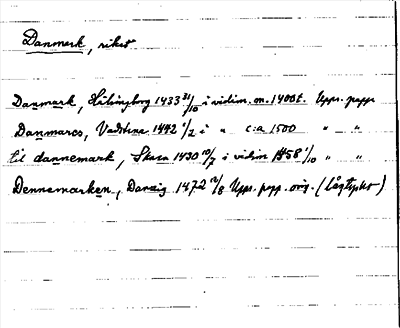 Danmark, riket
Danmark, Hälsingborg 1433 31/10 i vidim. m. 1400t. Upps. papp
Danmarcs, Vadstena 1442 2/2 i " c:a 1500 " "
til dannemark, Skara 1430 10/7 i vidim 1458 1/10 " "
Dennemarken, Danzig 1472 12/8 Upps. papp. orig. (lågtyska)